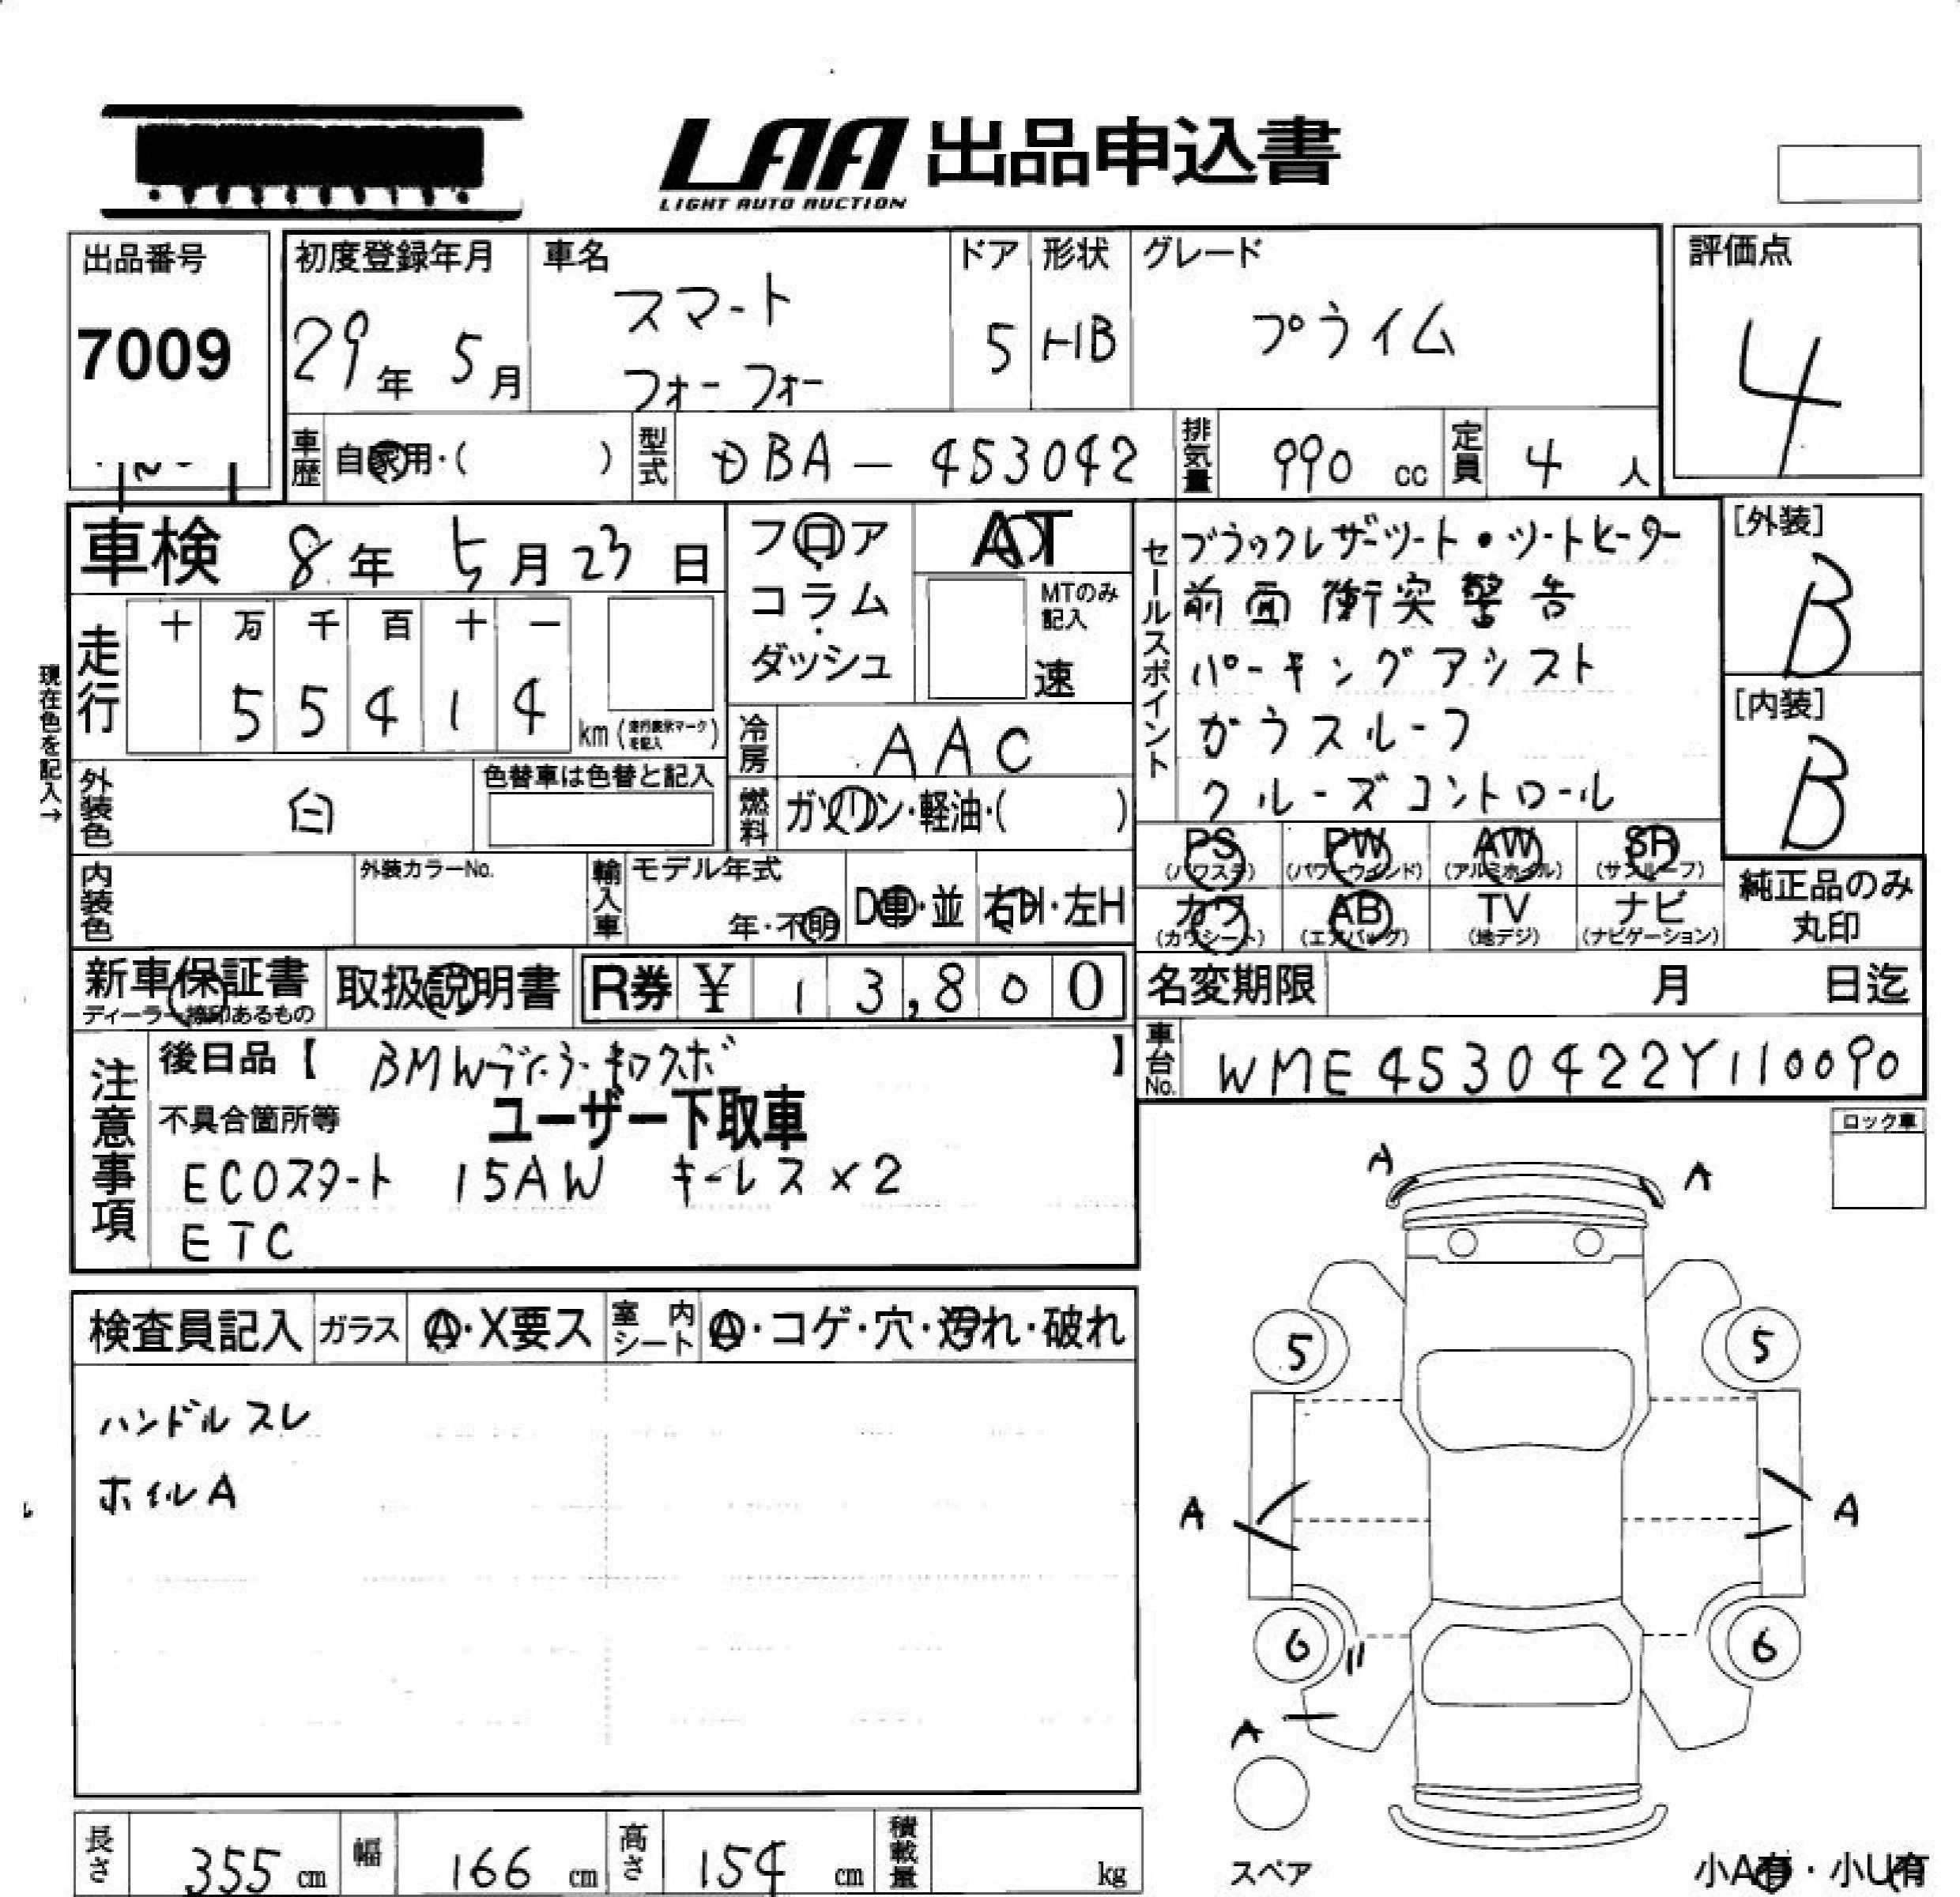 LAA 出品申込書
LIGHT AUTO AUCTION
出品番号
7009
初度登録年月
29年 5月
車名
スマート
フォーフォー
ドア
5
形状
HB
グレード
プライム
評価点
4
車歴 自家用・( )
型式 DBA-453042
排気量 990 cc
定員 4 人
車検 8年 5月 23日
フロア・コラム・ダッシュ
AT
MTのみ記入
速
走行 十 万 千 百 十 一
5 5 4 1 4 km
現在色を記入→
冷房 AAC
外装色 白
色替車は色替と記入
燃料 ガソリン・軽油・( )
内装色
外装カラーNo.
輸入車
モデル年式
年・不明
D車・並
右H・左H
新車保証書
ディーラー捺印あるもの
取扱説明書
R券 ¥ 13,800
セールスポイント
ブラックレザーシート・シートヒーター
前面衝突警告
パーキングアシスト
ガラスルーフ
クルーズコントロール
[外装]
B
[内装]
B
PS (パワステ)
PW (パワーウインド)
AW (アルミホイル)
SR (サンルーフ)
カワ (カワシート)
AB (エアバッグ)
TV (地デジ)
ナビ (ナビゲーション)
純正品のみ
丸印
名変期限 月 日迄
車台No. WME4530422Y110090
注意事項
後日品【 】
不具合箇所等
ユーザー下取車
ECOスタート 15AW キーレス×2
ETC
ロック車
検査員記入
ガラス A・X要ス
室内シート A・コゲ・穴・汚れ・破れ
ハンドルスレ
ホイルA
A A
5 5
A A
6 6
A
スペア
長さ 355 cm
幅 166 cm
高さ 154 cm
積載量 kg
小A有・小U有